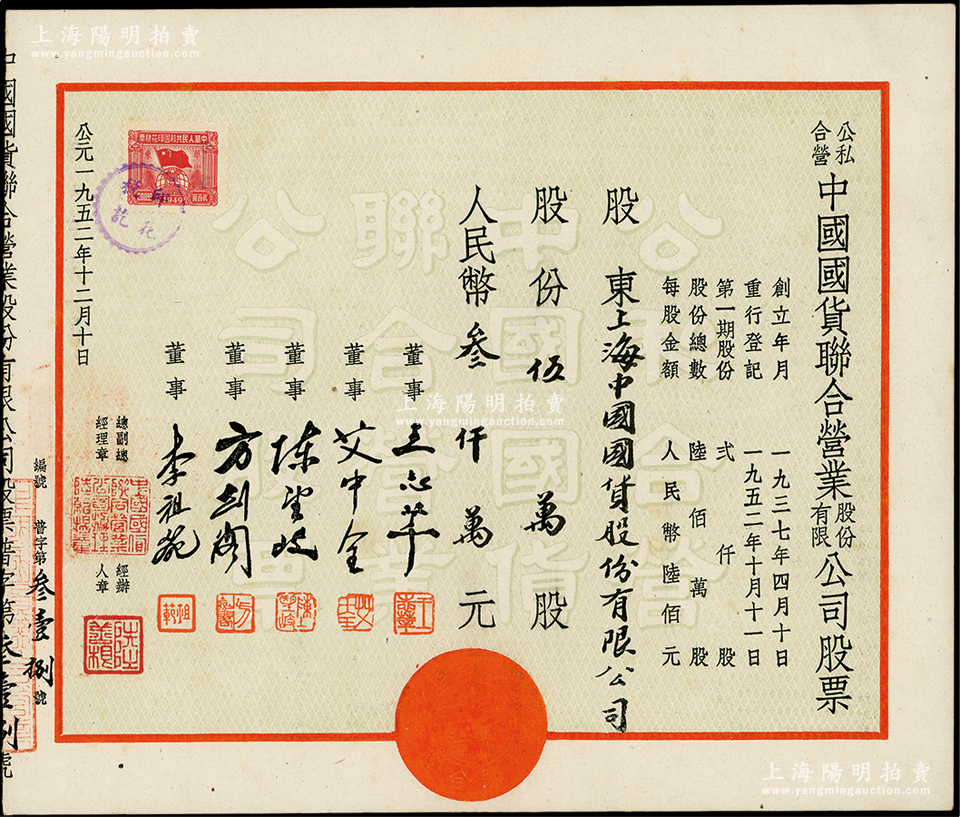 上海陽明拍賣
www.yangmingauction.com
公私合營中國國貨聯合營業股份有限公司股票
創立年月 一九三七年四月十日
重行登記 一九五二年十月十一日
第一期股份 弍仟股
股份總數 陸佰萬股
每股金額 人民幣陸佰元
股東上海中國國貨股份有限公司
股份伍萬股
人民幣叁仟萬元
董事
董事 艾中全
董事 陳望岐
董事 方剑阁
董事 李祖范
總副總經理章
經辦人章
中華人民共和國印花稅票
1949
公元一九五二年十二月十日
編號 普字第叁壹捌號
中國國貨聯合營業股份有限公司股票普字第叁壹捌號
公私合營
中國國貨
聯合營業
公司股票
上海陽明拍賣
www.yangmingauction.com
上海陽明拍賣
www.yangmingauction.com